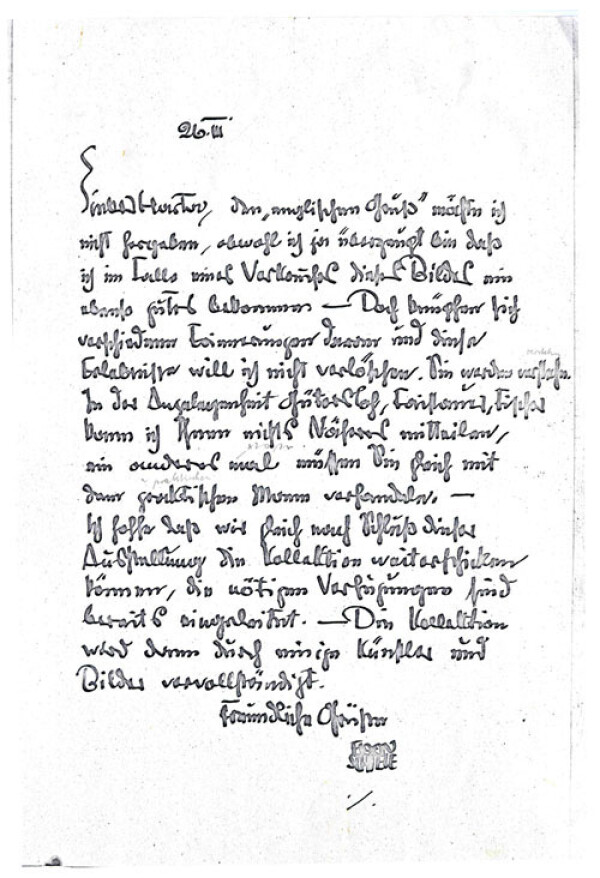 26. III.
Lieber Doctor, den „englischen Gruß" möchte ich
nicht hergeben, obwohl ich ja überzeugt bin daß
ich im Falle eines Verkaufes dieses Bildes ein
ebenso gutes bekomme — Doch knüpfen sich
verschiedene Erinnerungen daran und diese
Erlebnisse will ich nicht verlöschen. Sie werden verstehn.
In der Angelegenheit Gütersloh, Faistauer, Fischer
kann ich Ihnen nichts Näheres mitteilen,
ein anderes mal müssen Sie gleich mit
dem praktischen Mann verhandeln. —
Ich hoffe daß wir gleich nach Schluß dieser
Ausstellung die Kollektion weiterschicken
können, die nötigen Verfügungen sind
bereits eingeleitet. — Die Kollektion
wird dann durch einige Künstler und
Bilder vervollständigt.
Freundliche Grüße